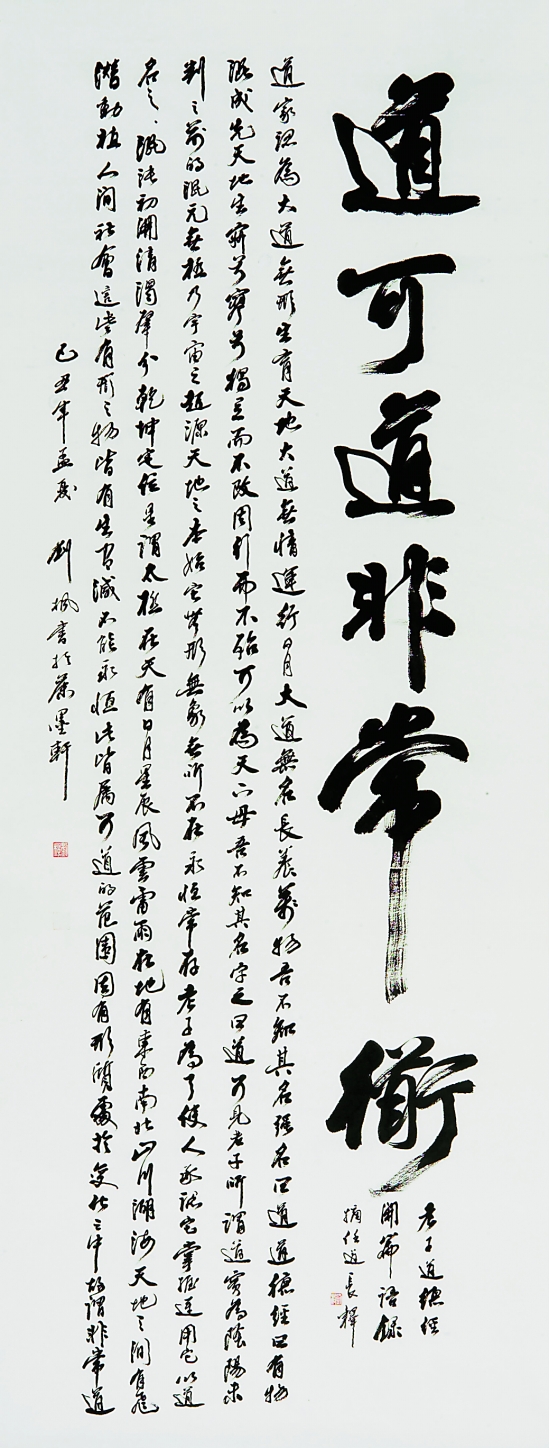 道可道非常衜
老子道德經
開篇語錄
摘任道長釋
道家認為大道無形生育天地大道無情運行日月大道無名長養萬物吾不知其名强名曰道道德經曰有物
混成先天地生寂兮寥兮獨立而不改周行而不殆可以為天下母吾不知其名字之曰道可見老子所謂道實為陰陽未
判之前的混元無極乃宇宙之起源天地之本始它無形無象無所不在永恒常存老子為了使人承認它掌握運用它以道
名之混沌初開清濁肇分乾坤定位是謂太極在天有日月星辰風雲雷雨在地有東西南北山川湖海天地之間有飛
潛動植人間社會這些有形之物皆有生有滅不能永恒此皆屬可道的范圍因有形質處於變化之中故謂非常道
己丑年孟夏 劉楓書於墨軒